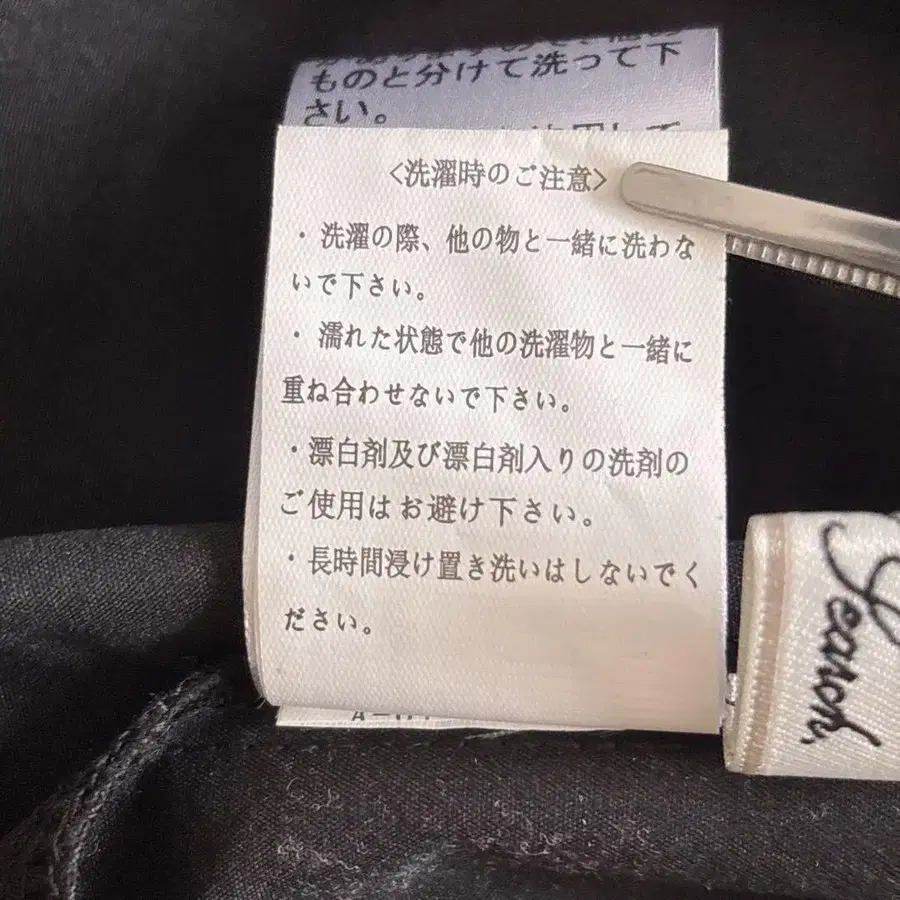 ものと分けて洗って下
さい。
<洗濯時のご注意>
・洗濯の際、他の物と一緒に洗わな
いで下さい。
・濡れた状態で他の洗濯物と一緒に
重ね合わせないで下さい。
・漂白剤及び漂白剤入りの洗剤の
ご使用はお避け下さい。
・長時間浸け置き洗いはしないでく
ださい。
Search.